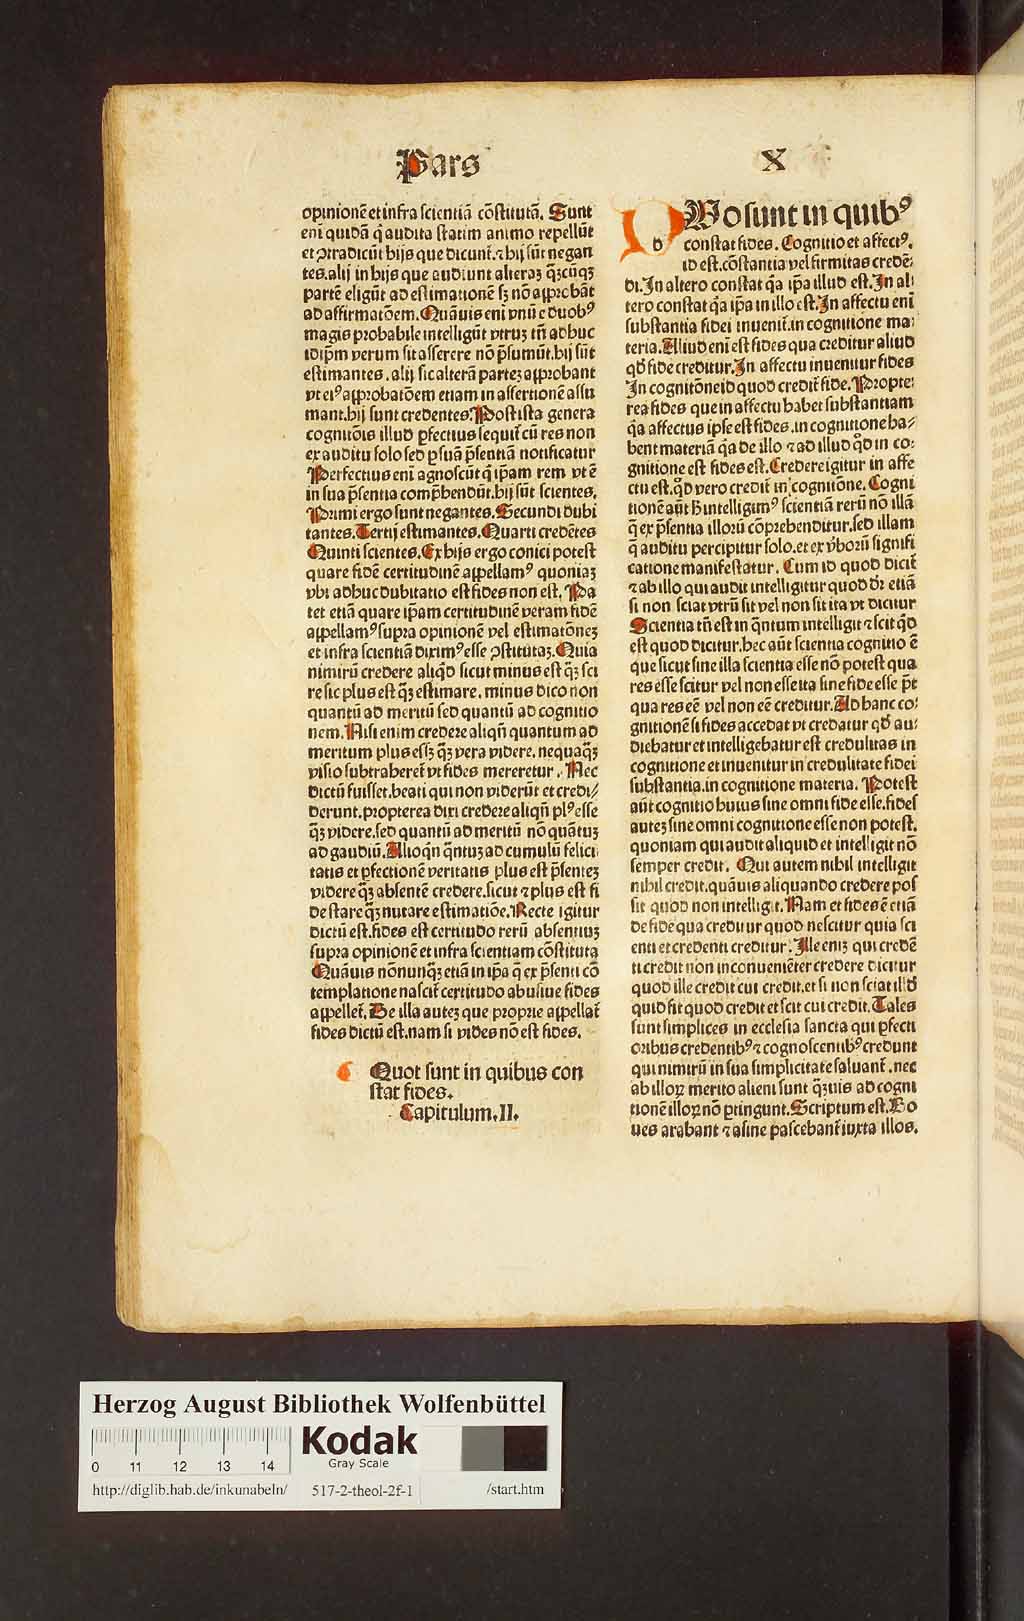 Pars
X
opinionē et infra scientiā cōstitutā. Sunt
eni quidā q̄ audita statim animo repellūt
et ꝯtradicūt hijs que dicunt. ⁊ hij sūt negan
tes. alij in hijs que audiunt alteraꝫ q̄ꝫcūqꝫ
partē eligūt ad estimationē sꝫ nō aꝓprobāt
ad affirmatōem. Quāuis eni vnū e duobꝰ
magis probabile intelligūt vtruꝫ tn̄ adhuc
id ip̄m verum sit asserere nō p̄sumūt. hij sūt
estimantes. alij sic alterā parteꝫ approbant
vt eiꝰ approbatōem etiam in assertionē assu
mant. hij sunt credentes. Post ista genera
cognitōis illud ꝑfectius sequit̄ cū res non
ex auditu solo sed ꝑ suā p̄sentiā notificatur
Perfectius eni agnoscūt q̄ ip̄am rem vt ē
in sua p̄sentia comp̄hendūt. hij sūt scientes.
Primi ergo sunt negantes. Secundi dubi
tantes. Tertij estimantes. Quarti credētes
Quinti scientes. Ex hijs ergo conici potest
quare fidē certitudinē appellamꝰ quoniaꝫ
vbi adhuc dubitatio est fides non est. Pa
tet etiā quare ip̄am certitudinē veram fidē
appellamꝰ supra opinionē vel estimatōneꝫ
et infra scientiā diximꝰ esse ꝯstitutaꝫ. Quia
nimirū credere aliqd̄ sicut minus est q̄ꝫ sci
re sic plus est q̄ꝫ estimare. minus dico non
quantū ad meritū sed quantū ad cognitio
nem. Nisi enim credere aliqn̄ quantum ad
meritum plus essꝫ q̄ꝫ vera videre. nequaq̄ꝫ
visio subtraheret̄ vt fides mereretur. Nec
dictū fuisset. beati qui non viderūt et credi⸗
derunt. propterea dixi credere aliqn̄ plꝰ esse
q̄ꝫ videre. sed quantū ad meritū nō quātuꝫ
ad gaudiū. Alioqn̄ q̄ntuꝫ ad cumulū felici
tatis et ꝑfectionē veritatis plus est p̄senteꝫ
videre q̄ꝫ absentē credere. sicut ⁊ plus est fi
de stare q̄ꝫ nutare estimatiōe. Recte igitur
dictū est. fides est certitudo rerū absentiuꝫ
supra opinionē et infra scientiam cōstituta
Quāuis nōnunq̄ꝫ etiā in ip̄a q̄ ex p̄senti cō
templatione nascit̄ certitudo abusiue fides
appellet̄. De illa auteꝫ que proprie appellat̄
fides dictū est. nam si vides nō est fides.
Quot sunt in quibus con
stat fides.
Capitulum. II.
DUo sunt in quibꝰ
constat fides. Cognitio et affectꝰ.
id est. cōstantia vel firmitas credē⸗
di. In altero constat q̄a ip̄a illud est. In al⸗
tero constat q̄a ip̄a in illo est. In affectu eni
substantia fidei inuenit̄. in cognitione ma⸗
teria. Aliud eni est fides qua creditur aliud
qd̄ fide creditur. In affectu inuenitur fides
In cognitōne id quod credit̄ fide. Propte⸗
rea fides que in affectu habet substantiam
q̄a affectus ipse est fides. in cognitione ha⸗
bent materiā q̄a de illo ⁊ ad illud qd̄ in co⸗
gnitione est fides est. Credere igitur in affe
ctu est. qd̄ vero credit̄ in cognitōne. Cogni
tionē aūt h̄ intelligimꝰ scientiā rerū nō illā
q̄ ex p̄sentia illorū cōprehenditur. sed illam
q̄ auditu percipitur solo. et ex v̄borū signifi
catione manifestatur. Cum id quod dicit̄
⁊ ab illo qui audit intelligitur quod dr̄ etiā
si non sciat vtrū sit vel non sit ita vt dicitur
Scientia tn̄ est in q̄ntum intelligit ⁊ scit qd̄
est quod dicitur. hec aūt scientia cognitio ē
que sicut sine illa scientia esse nō potest qua
res esse scitur vel non esse ita sine fide esse p̄t
qua res eē vel non eē creditur. Ad hanc co⸗
gnitionē si fides accedat vt credatur qd̄ au⸗
diebatur et intelligebatur est credulitas in
cognitione et inuenitur in credulitate fidei
substantia. in cognitione materia. Potest
aūt cognitio huius sine omni fide esse. fides
auteꝫ sine omni cognitione esse non potest.
quoniam qui audit aliquid et intelligit nō
semper credit. Qui autem nihil intelligit
nihil credit. quāuis aliquando credere pos
sit quod non intelligit. Nam et fides ē etiā
de fide qua creditur quod nescitur quia sci
enti et credenti creditur. Ille eniꝫ qui credē
ti credit non inconueniēter credere dicitur
quod ille credit cui credit. et si non sciat illd̄
quid sit quod credit et scit cui credit. Tales
sunt simplices in ecclesia sancta qui ꝑfecti
oribus credentibꝰ ⁊ cognoscentibꝰ credunt
qui nimirū in sua simplicitate saluant̄. nec
ab illoꝝ merito alieni sunt q̄ꝫuis ad cogni
tionē illoꝝ nō ꝑtingunt. Scriptum est. Bo
ues arabant ⁊ asine pascebant̄ iuxta illos.
Herzog August Bibliothek Wolfenbüttel
Kodak
Gray Scale
0 11 12 13 14
http://diglib.hab.de/inkunabeln/ 517-2-theol-2f-1 /start.htm